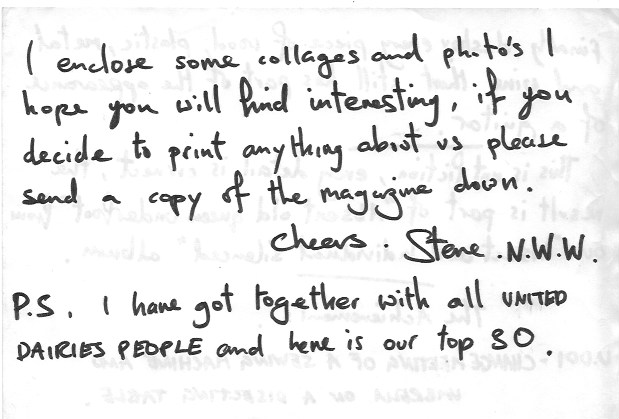 I enclose some collages and photo's I
hope you will find interesting, if you
decide to print anything about us please
send a copy of the magazine down.
Cheers. Steve. N.W.W.
P.S. I have got together with all UNITED
DAIRIES PEOPLE and here is our top 30.